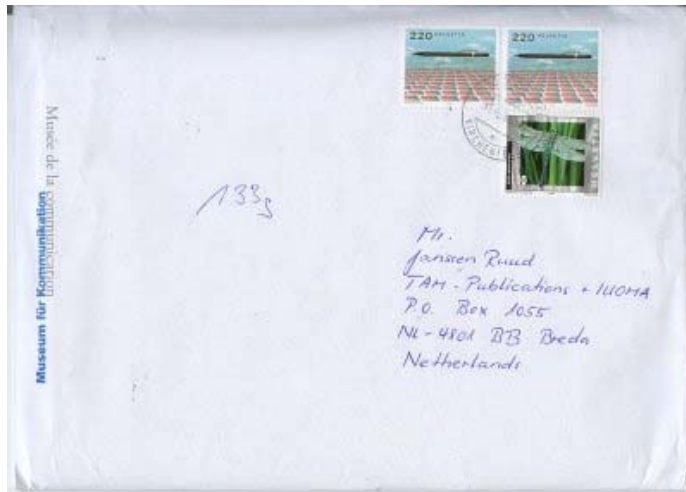 220 HELVETIA
220 HELVETIA
HELVETIA
Musée de la communication
Museum für Kommunikation
133g
Mr.
Janssen Ruud
TAM-Publications + IUOMA
P.O. Box 1055
NL-4801 BB Breda
Netherlands